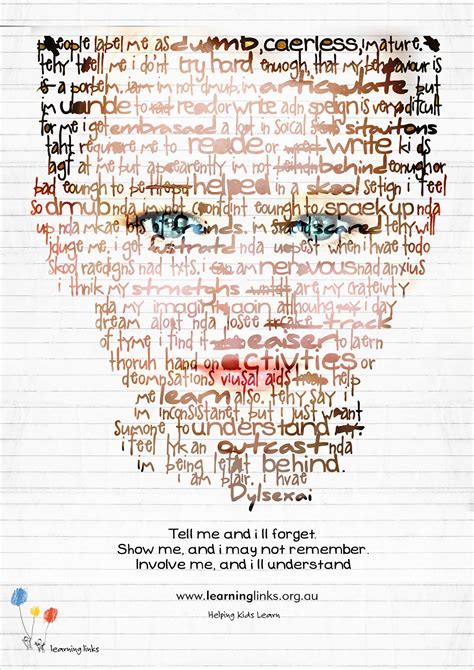 people label me as dumb, caerless, imature.
tehy tell me i do'nt try hard enuogh, that my behaviour is
is a porbelm. iam im not dmub, im articulate but
im uanble to read or write adn spleign is very ditcult
for me i get embrasaed a loot in soical sets situaitons
taht reqiure me to reade or write kids
agt me but apearently im not behind enough or
bad eoungh to be helped in a skool setign i feel
So dmub nda im not confdint eoungh to spaek up nda
up nda mkae lots of freinds. im scared tehy will
jduge me, i get fustratd nda upest when i hvae todo
Skool raedigns nad txts. i an nervous nad anxius
i thnik my strneghs are my craetivty
nda my imaginaoin althoung i day
dream alout nda losee track
of tyme i find it easier to laern
thoruh hand on activties or
deomnsations viusal aids help
me learn also. tehy say i im
inconsistanet, but i just want
sumone to understand
i feel lyk an outcast nda
im being lefat behind.
i am blair. i hvae
Dylsexai
Tell me and i ll forget.
Show me, and i may not remember.
Involve me, and i ll understand
www.learninglinks.org.au
Helping Kids Learn
learning links